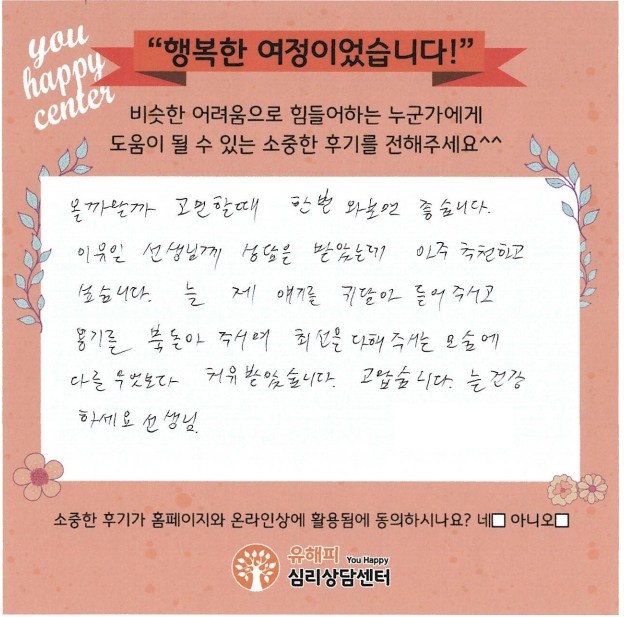 you
happy
center
“행복한 여정이었습니다!”
비슷한 어려움으로 힘들어하는 누군가에게
도움이 될 수 있는 소중한 후기를 전해주세요^^
올까말까 고민할때 한번 와보면 좋습니다.
이유일 선생님께 상담을 받았는데 아주 추천하고
싶습니다. 늘 제 얘기를 귀담아 들어 주시고
용기를 북돋아 주시며 최선을 다해 주시는 모습에
다른 무엇보다 치유받았습니다. 고맙습니다. 늘 건강
하세요 선생님.
소중한 후기가 홈페이지와 온라인상에 활용됨에 동의하시나요? 네□ 아니오□
유해피 You Happy
심리상담센터